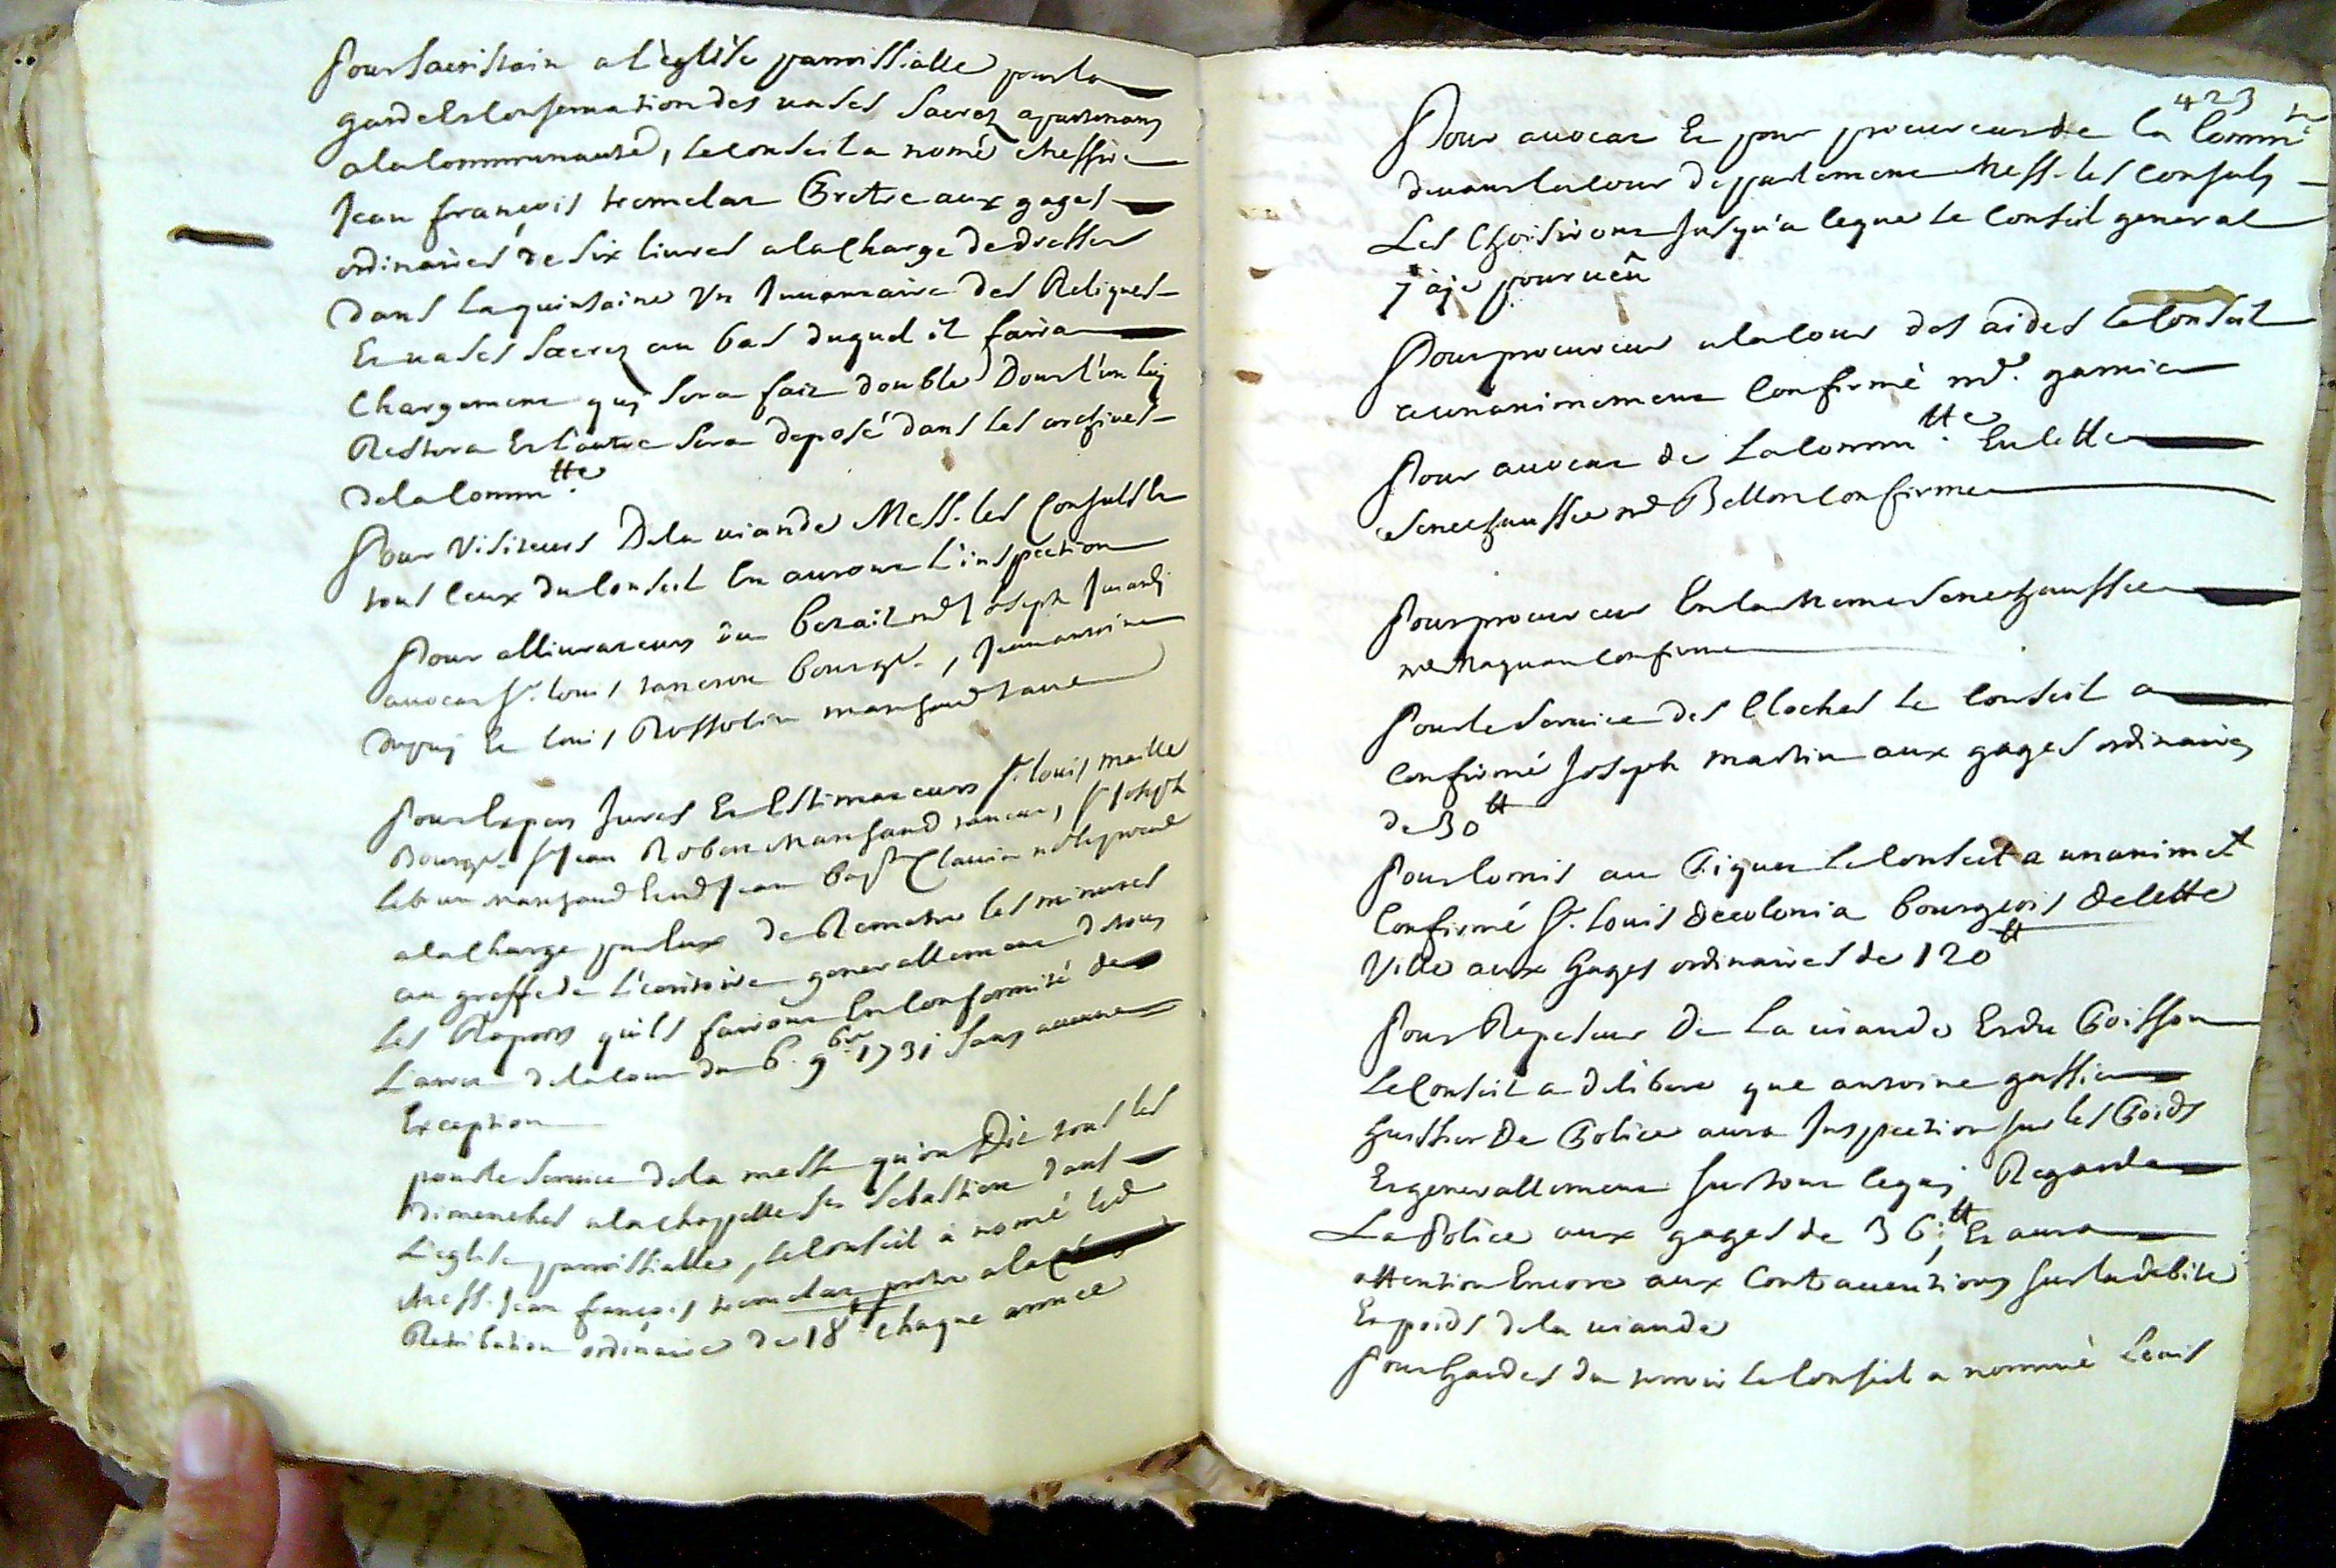 Pour Sacristain a l'églïse parroissialle pour la
garde et conservation des vases sacrez apartenans
a la communauté, le conseil a nomé Messire
Jean françois tremelat Pretre aux gages
ordinaires de six livres a la charge de dresser
dans la quinsaine un Inventaire des Reliques
et vases sacrez au bas duquel il faira
chargement quj sera fait double Dont l'un luj
Restera et l'autre sera deposé dans les archives
de la commtté.
Pour Visiteurs De la viande Mess. les Consuls et
tous ceux du conseil en auront l'inspection
Pour allivrateurs du betail me Joseph
avocat sr. louis bourgs., Jean antoine
et louis Rossolin marchand
Pour Expers Jures et Estimateurs sr. louis maille
Bourgs. sr Jean Robert Marchand taneur, sr Joseph
marchand et me Jean bapte
a la charge par eux de Remetre les minutes
au greffe de l'écritoire generallement de tous
les Raports qu'ils fairont en conformité de
l'arret de la cour du 6. 9bre 1731 sans aucune
Exception
pour le service de la messe qu'on Dit tous les
dimenches a la chappelle St Sebastien dans
l'eglise parroissialle, le conseil a nomé
Mess. Jean françois tremelat pretre a la
Retribution ordinaire de 18tt. chaque année
423
Pour avocat et pour procureur de la Commté
devant la cour de parlement Mess. les consuls
Les choisiront jusqu'a ce que le conseil general
j aje pourveü
Pour procureur a la cour des aides le conseil
a unanimement confirmé me. garnier
Pour avocat de la commtté. en cette
senechaussée me Bellon confirmé
Pour procureur en la meme senechaussée
me Maquan confirmé
Pour le service des cloches le conseil a
confirmé Joseph martin aux gages ordinaires
de 30tt
Pour comis au Piquet le conseil a unanimet
confirmé sr. louis decolonia bourgeois de cette
ville aux gages ordinaires de 120tt
Pour Repeseur de la viande et du Poisson
le conseil a deliberé que antoine gassier
huissier de Police aura Inspection sur les Poids
et generallement sur tout ce quj Regarde
La Police aux gages de 36;tt et aura
attention encore aux contraventions sur la debite
et poids de la viande
Pour gardes du terroir le conseil a nommé Louis